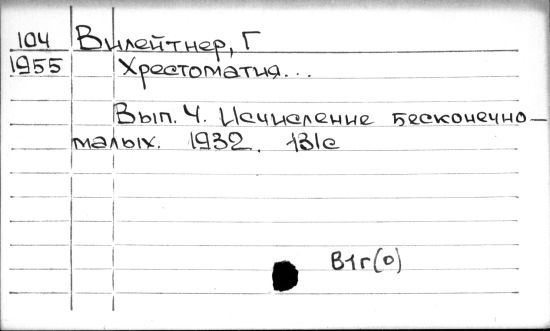 104 Вилейтнер, Г
1955 Хрестоматия...
Вып. 4. Исчисление бесконечно-
малых. 1932. 131с
В1г(о)